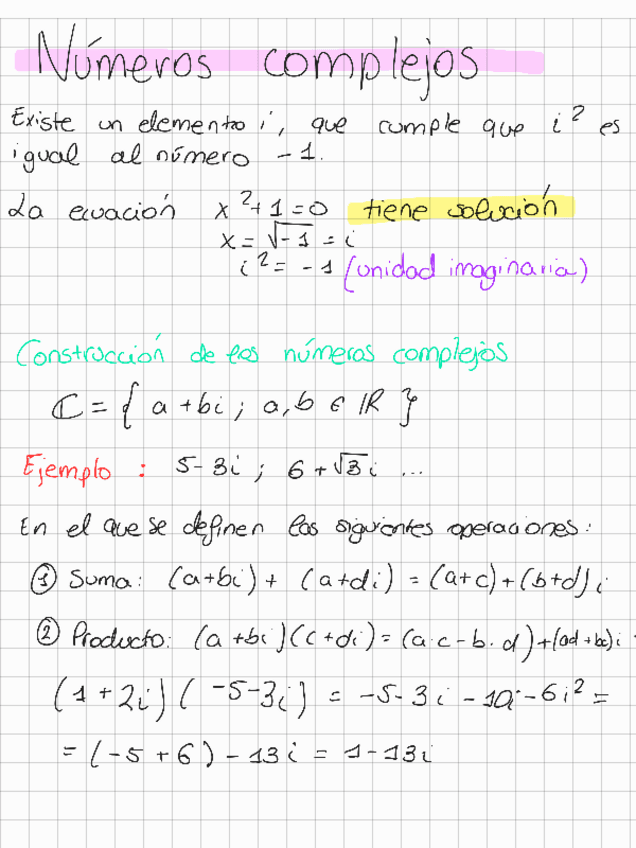 Números complejos
Existe un elemento i, que cumple que i² es
igual al número -1.
La ecuación x²+1=0 tiene solución
x = √-1 = i
i² = -1 (unidad imaginaria)
Construcción de los números complejos
ℂ = { a + bi ; a, b ∈ ℝ }
Ejemplo : 5-3i ; 6+√3 i ...
En el que se definen las siguientes operaciones:
① Suma: (a+bi) + (a+di) = (a+c)+(b+d)i
② Producto: (a+bi)(c+di)=(a·c-b·d)+(ad+bc)i
(1+2i)(-5-3i) = -5-3i-10i-6i² =
= (-5+6)-13i = 1-13i